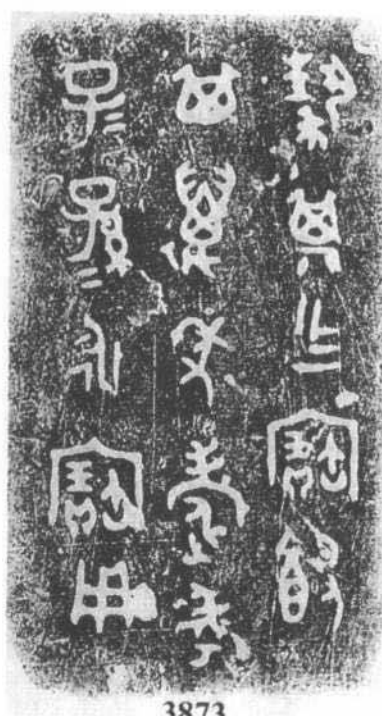 其乍寶𣪘
其萬年壽考
子=孫=永寶用
3873